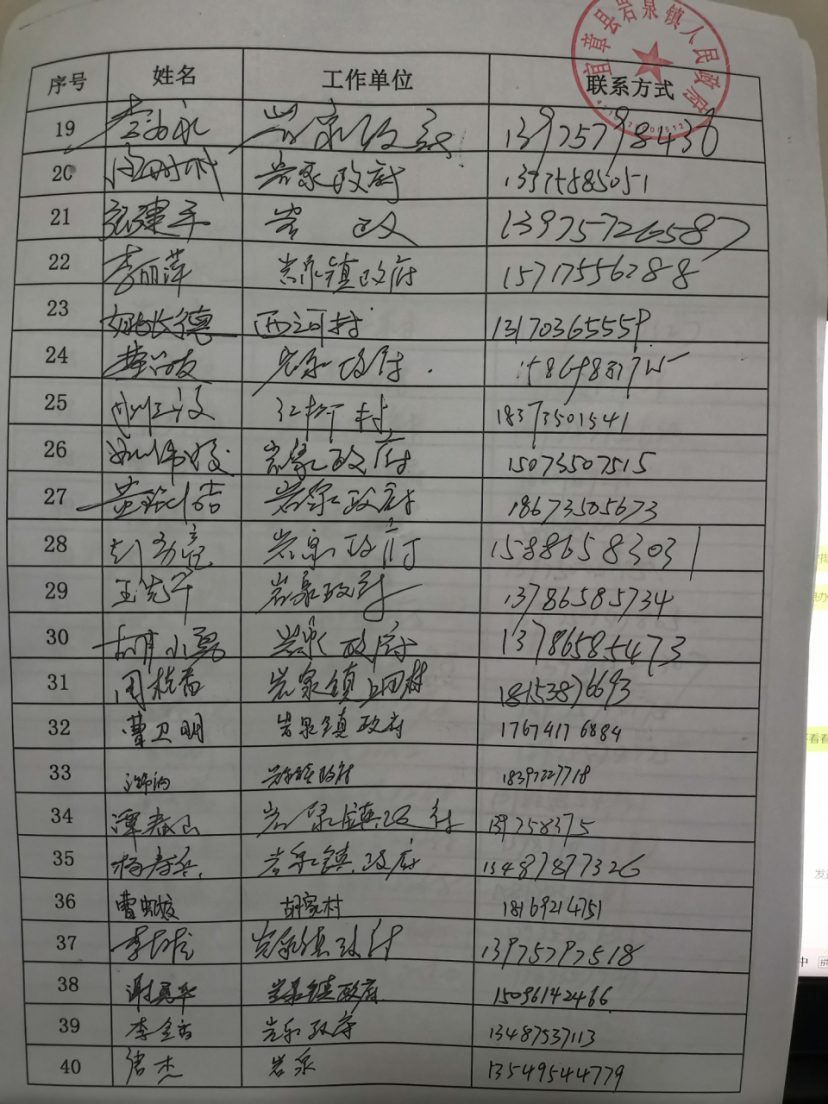 宜章县岩泉镇人民政府
序号 姓名 工作单位 联系方式
19 岩泉政府 13975798436
20 岩泉政府 13975885051
21 岩 政 13975726587
22 李丽萍 岩泉镇政府 15717556288
23 姚长德 西河村 13170365559
24 岩泉政府
25 村 18373501541
26 岩泉政府 15073507515
27 岩泉政府 18673505673
28 岩泉政府 15886583031
29 王先军 岩泉政府 13786585734
30 胡小勇 岩泉政府 13786585473
31 岩泉镇上田村 18153876693
32 曹卫明 岩泉镇政府 17674176884
33 岩泉镇政府 18397227718
34 岩泉镇政府 139758375
35 岩泉镇政府 13487877326
36 曹 胡家村 18169214751
37 李 岩泉镇政府 13975797518
38 谢 华 岩泉镇政府 15096142466
39 李 岩泉政府 13487537113
40 唐杰 岩泉 13549544779